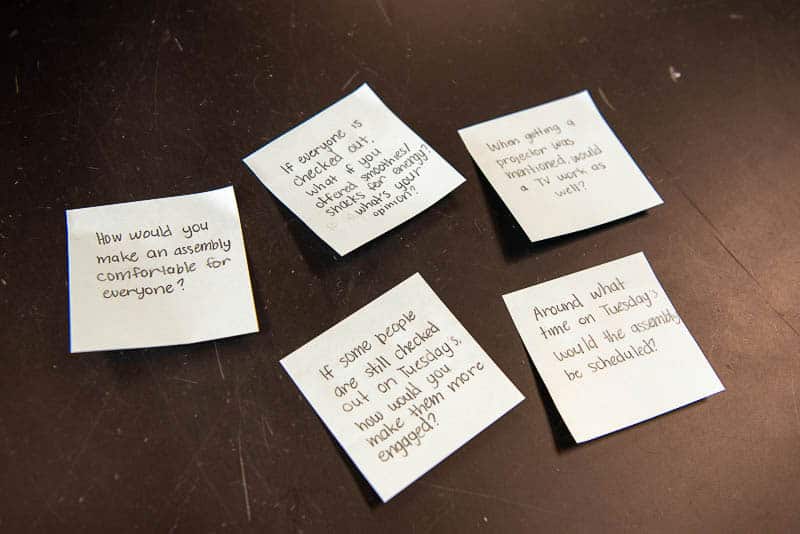 How would you
make an assembly
comfortable for
everyone?
If everyone is
checked out,
what if you
offered smoothies/
snacks for energy?
what's your
opinion?
When getting a
projector was
mentioned, would
a TV work as
well?
If some people
are still checked
out on Tuesday's,
how would you
make them more
engaged?
Around what
time on Tuesday's
would the assembly
be scheduled?